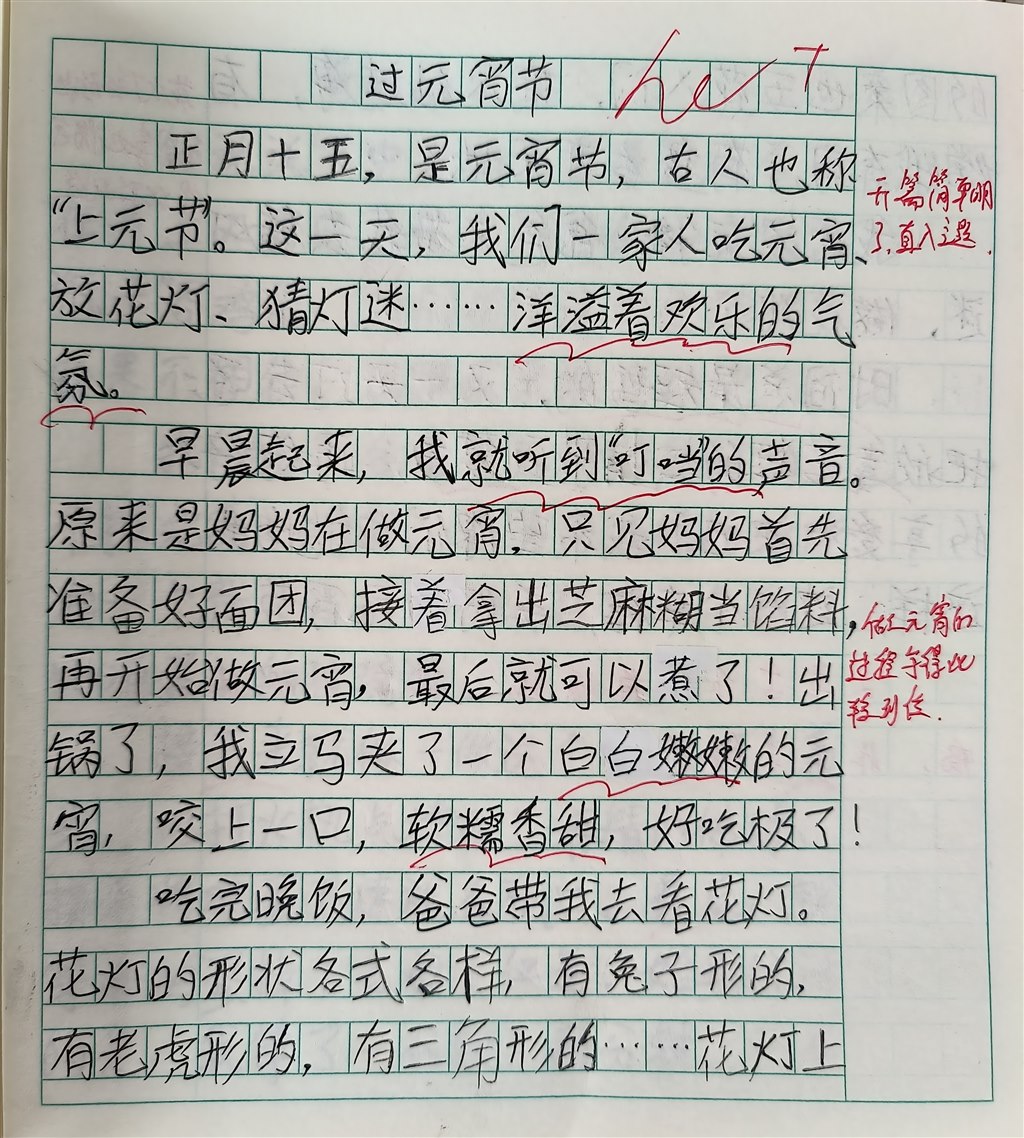 过元宵节
正月十五，是元宵节，古人也称
“上元节”。这一天，我们一家人吃元宵、
放花灯、猜灯迷……洋溢着欢乐的气
氛。
早晨起来，我就听到“叮当”的声音。
原来是妈妈在做元宵，只见妈妈首先
准备好面团，接着拿出芝麻糊当馅料，
再开始做元宵，最后就可以煮了！出
锅了，我立马夹了一个白白嫩嫩的元
宵，咬上一口，软糯香甜，好吃极了！
吃完晚饭，爸爸带我去看花灯。
花灯的形状各式各样，有兔子形的，
有老虎形的，有三角形的……花灯上
开篇简单明
了，直入主题．
做元宵的
过程写得比
较到位．